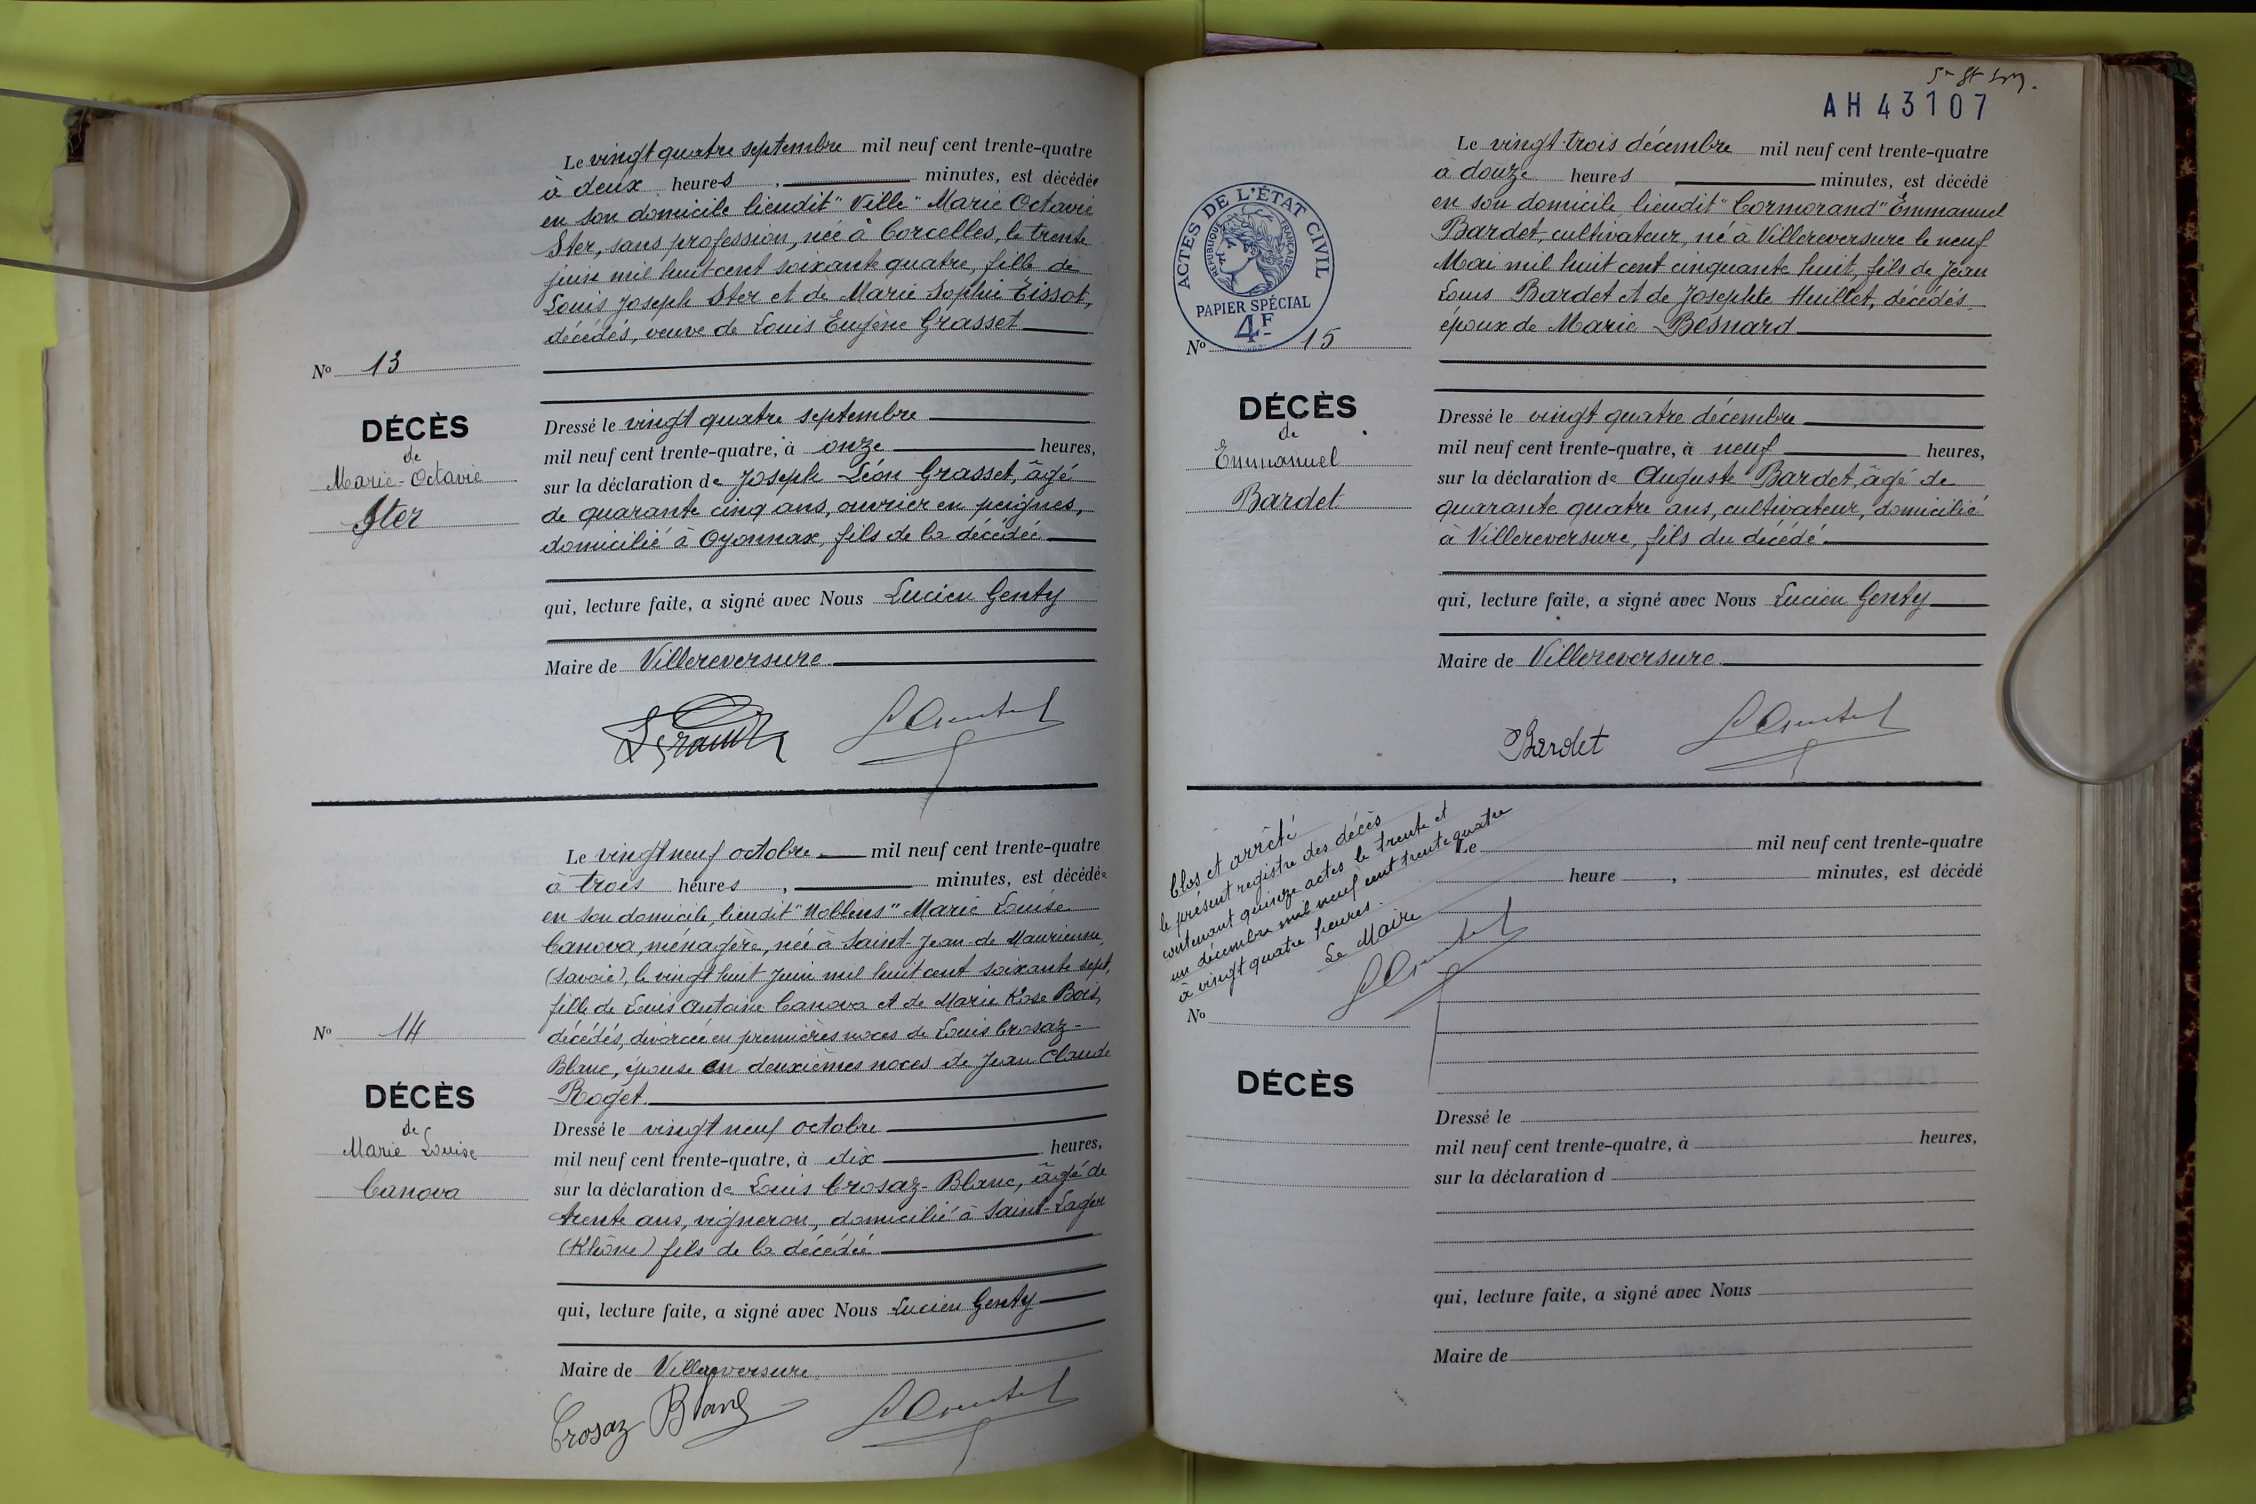 Le vingt quatre septembre mil neuf cent trente-quatre
à deux heures , minutes, est décédée
en son domicile lieudit "Ville" Marie Octavie
Ster, sans profession, née à Corcelles, le trente
juin mil huit cent soixante quatre, fille de
Louis Joseph Ster et de Marie Sophie Tissot,
décédés, veuve de Louis Eugène Grasset
No 13
DÉCÈS
de
Marie-Octavie
Ster
Dressé le vingt quatre septembre
mil neuf cent trente-quatre, à onze heures,
sur la déclaration de Joseph Léon Grasset, âgé
de quarante cinq ans, ouvrier en peignes,
domicilié à Oyonnax, fils de la décédée
qui, lecture faite, a signé avec Nous Lucien Genty
Maire de Villereversure
Le vingt neuf octobre mil neuf cent trente-quatre
à trois heures , minutes, est décédée
en son domicile, lieudit "Noblens" Marie Louise
Canova, ménagère, née à Saint-Jean-de Maurienne,
(Savoie), le vingt huit Juin mil huit cent soixante sept,
fille de Louis Antoine Canova et de Marie Rose Bois,
décédés, divorcée en premières noces de Louis Crosaz-
Blanc, épouse en deuxièmes noces de Jean Claude
Roget
No 14
DÉCÈS
de
Marie Louise
Canova
Dressé le vingt neuf octobre
mil neuf cent trente-quatre, à dix heures,
sur la déclaration de Louis Crosaz-Blanc, âgé de
trente ans, vigneron, domicilié à Saint-Lager
(Rhône) fils de la décédée
qui, lecture faite, a signé avec Nous Lucien Genty
Maire de Villereversure
Crosaz Blanc
AH 43107
Le vingt-trois décembre mil neuf cent trente-quatre
à douze heures minutes, est décédé
en son domicile, lieudit "Cormorand" Emmanuel
Bardet, cultivateur, né à Villereversure le neuf
Mai mil huit cent cinquante huit, fils de Jean
Louis Bardet et de Josephte Huillet, décédés,
époux de Marie Besnard
ACTES DE L'ÉTAT CIVIL
RÉPUBLIQUE FRANÇAISE
PAPIER SPÉCIAL
4F
No 15
DÉCÈS
de
Emmanuel
Bardet
Dressé le vingt quatre décembre
mil neuf cent trente-quatre, à neuf heures,
sur la déclaration de Auguste Bardet, âgé de
quarante quatre ans, cultivateur, domicilié
à Villereversure, fils du décédé
qui, lecture faite, a signé avec Nous Lucien Genty
Maire de Villereversure
Bardet
Clos et arrêté
le présent registre des décès
contenant quinze actes le trente et
un décembre mil neuf cent trente quatre
à vingt quatre heures.
Le Maire
Le mil neuf cent trente-quatre
heure , minutes, est décédé
No
DÉCÈS
Dressé le
mil neuf cent trente-quatre, à heures,
sur la déclaration d
qui, lecture faite, a signé avec Nous
Maire de